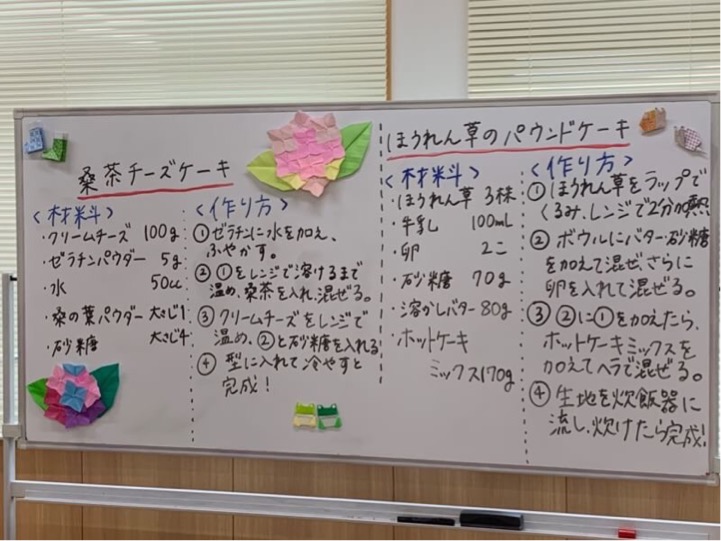 桑茶チーズケーキ
<材料>
・クリームチーズ 100g
・ゼラチンパウダー 5g
・水 50cc
・桑の葉パウダー 大さじ1
・砂糖 大さじ4
<作り方>
①ゼラチンに水を加え、
ふやかす。
②①をレンジで溶けるまで
温め、桑茶を入れ、混ぜる。
③クリームチーズをレンジで
温め、②と砂糖を入れる
④型に入れて冷やすと
完成!
ほうれん草のパウンドケーキ
<材料>
・ほうれん草 3株
・牛乳 100mL
・卵 2こ
・砂糖 70g
・溶かしバター 80g
・ホットケーキ
ミックス170g
<作り方>
①ほうれん草をラップで
くるみ、レンジで2分加熱
②ボウルにバター・砂糖
を加えて混ぜ、さらに
卵を入れて混ぜる。
③②に①を加えたら、
ホットケーキミックスを
加えてヘラで混ぜる。
④生地を炊飯器に
流し、炊けたら完成!